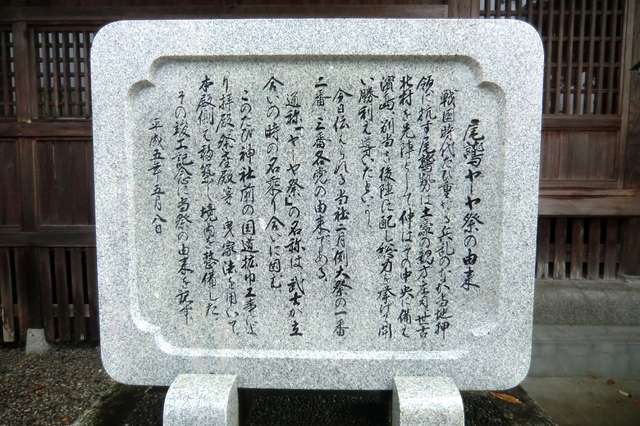 尾鷲ヤーヤ祭の由来
戦国時代に重なる兵乱のなか当地押
領に抗す尾鷲勢は土豪の親方
北村を先陣として仲はその中央に備え
濱嶋別当を後陣に配し総力を挙げ闘
い勝利を導いたという
今日伝えられる当社二月例大祭の一番
二番、三番各党の由来である。
通称「ヤーヤ祭」の名称は、武士が立
合いの時の名乗り合いに因む
このたび神社前の国道拡巾工事により
り拝殿、祭器殿等 曳家法を用いて
本殿側に移築し境内を整備した
その竣工記念に当祭の由来を記す
平成五年五月八日